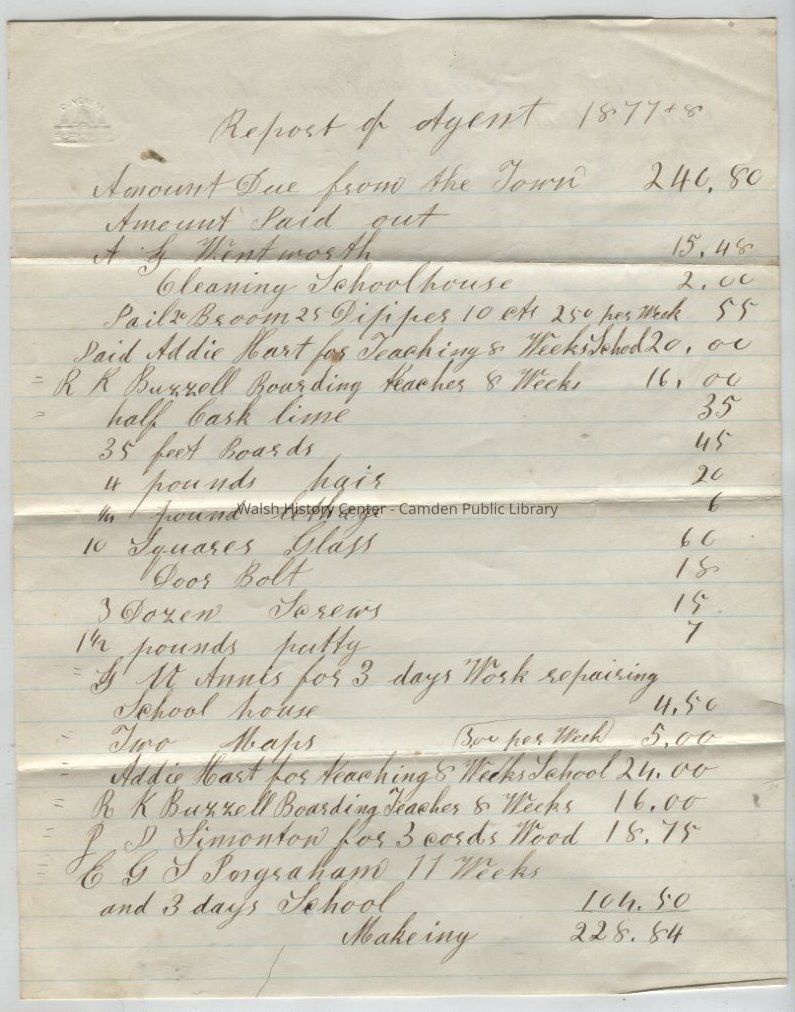 CONGRESS
Report of Agent 1877+8
Amount Due from the Town 240.80
Amount Paid out
A G Wentworth 15.48
Cleaning Schoolhouse 2.00
Pail Broom 25 Dipper 10 cts 250 per Week 55
Paid Addie Hart for Teaching 8 Weeks School 20.00
" R K Buzzell Boarding teacher 8 Weeks 16.00
" half Cask lime 35
35 feet Boards 45
4 pounds hair 20
pound 6
Walsh History Center - Camden Public Library
10 Squares Glass 60
Door Bolt 18
3 Dozen Screws 15
1 1/2 pounds putty 7
" G W Annis for 3 days Work repairing
School house 4.50
Two Maps (300 per Week) 5.00
" Addie Hart for teaching 8 Weeks School 24.00
" R K Buzzell Boarding Teacher 8 Weeks 16.00
" Simonton for 3 cords Wood 18.75
" E G S Ingraham 11 Weeks
and 3 days School 104.50
Makeing 228.84